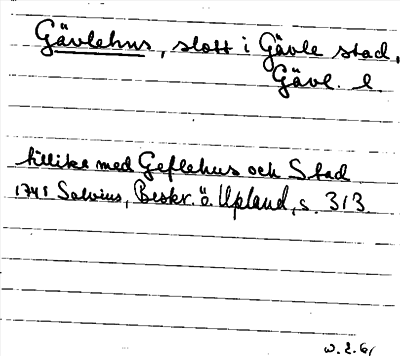 Gävlehus, slott i Gävle stad,
Gävl. l.
tillika med Geflehus och Stad
1741 Salvius, Beskr. ö. Upland, s. 313